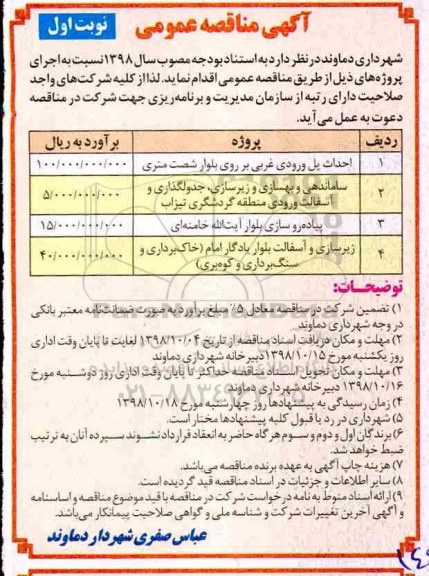 آگهی مناقصه عمومی
نوبت اول
شهرداری دماوند در نظر دارد به استناد بودجه مصوب سال ۱۳۹۸ نسبت به اجرای
پروژه‌های ذیل از طریق مناقصه عمومی اقدام نماید. لذا از کلیه شرکت‌های واجد
صلاحیت دارای رتبه از سازمان مدیریت و برنامه‌ریزی جهت شرکت در مناقصه
دعوت به عمل می‌آید.
ردیف پروژه برآورد به ریال
۱ احداث پل ورودی غربی بر روی بلوار شصت متری ۱۰۰/۰۰۰/۰۰۰/۰۰۰
۲ ساماندهی و بهسازی و زیرسازی، جدولگذاری و
آسفالت ورودی منطقه گردشگری تیزاب ۵/۰۰۰/۰۰۰/۰۰۰
۳ پیاده‌رو سازی بلوار آیت‌الله خامنه‌ای ۱۵/۰۰۰/۰۰۰/۰۰۰
۴ زیرسازی و آسفالت بلوار یادگار امام (خاک‌برداری و
سنگ‌برداری و کوه‌بری) ۴۰/۰۰۰/۰۰۰/۰۰۰
توضیحات:
۱) تضمین شرکت در مناقصه معادل ۵٪ مبلغ برآورد به صورت ضمانت‌نامه معتبر بانکی
در وجه شهرداری دماوند
۲) مهلت و مکان دریافت اسناد مناقصه از تاریخ ۱۳۹۸/۱۰/۰۴ لغایت تا پایان وقت اداری
روز یکشنبه مورخ ۱۳۹۸/۱۰/۱۵ دبیرخانه شهرداری دماوند
۳) مهلت و مکان تحویل اسناد مناقصه حداکثر تا پایان وقت اداری روز دوشنبه مورخ
۱۳۹۸/۱۰/۱۶ دبیرخانه شهرداری دماوند
۴) زمان رسیدگی به پیشنهادها روز چهارشنبه مورخ ۱۳۹۸/۱۰/۱۸
۵) شهرداری در رد یا قبول کلیه پیشنهادها مختار است.
۶) برندگان اول و دوم و سوم هرگاه حاضر به انعقاد قرارداد نشوند سپرده آنان به ترتیب
ضبط خواهد شد.
۷) هزینه چاپ آگهی به عهده برنده مناقصه می‌باشد.
۸) سایر اطلاعات و جزئیات در اسناد مناقصه قید گردیده است.
۹) ارائه اسناد منوط به نامه درخواست شرکت در مناقصه با قید موضوع مناقصه و اساسنامه
و آگهی آخرین تغییرات شرکت و شناسه ملی و گواهی صلاحیت پیمانکار می‌باشد.
عباس صفری شهردار دماوند